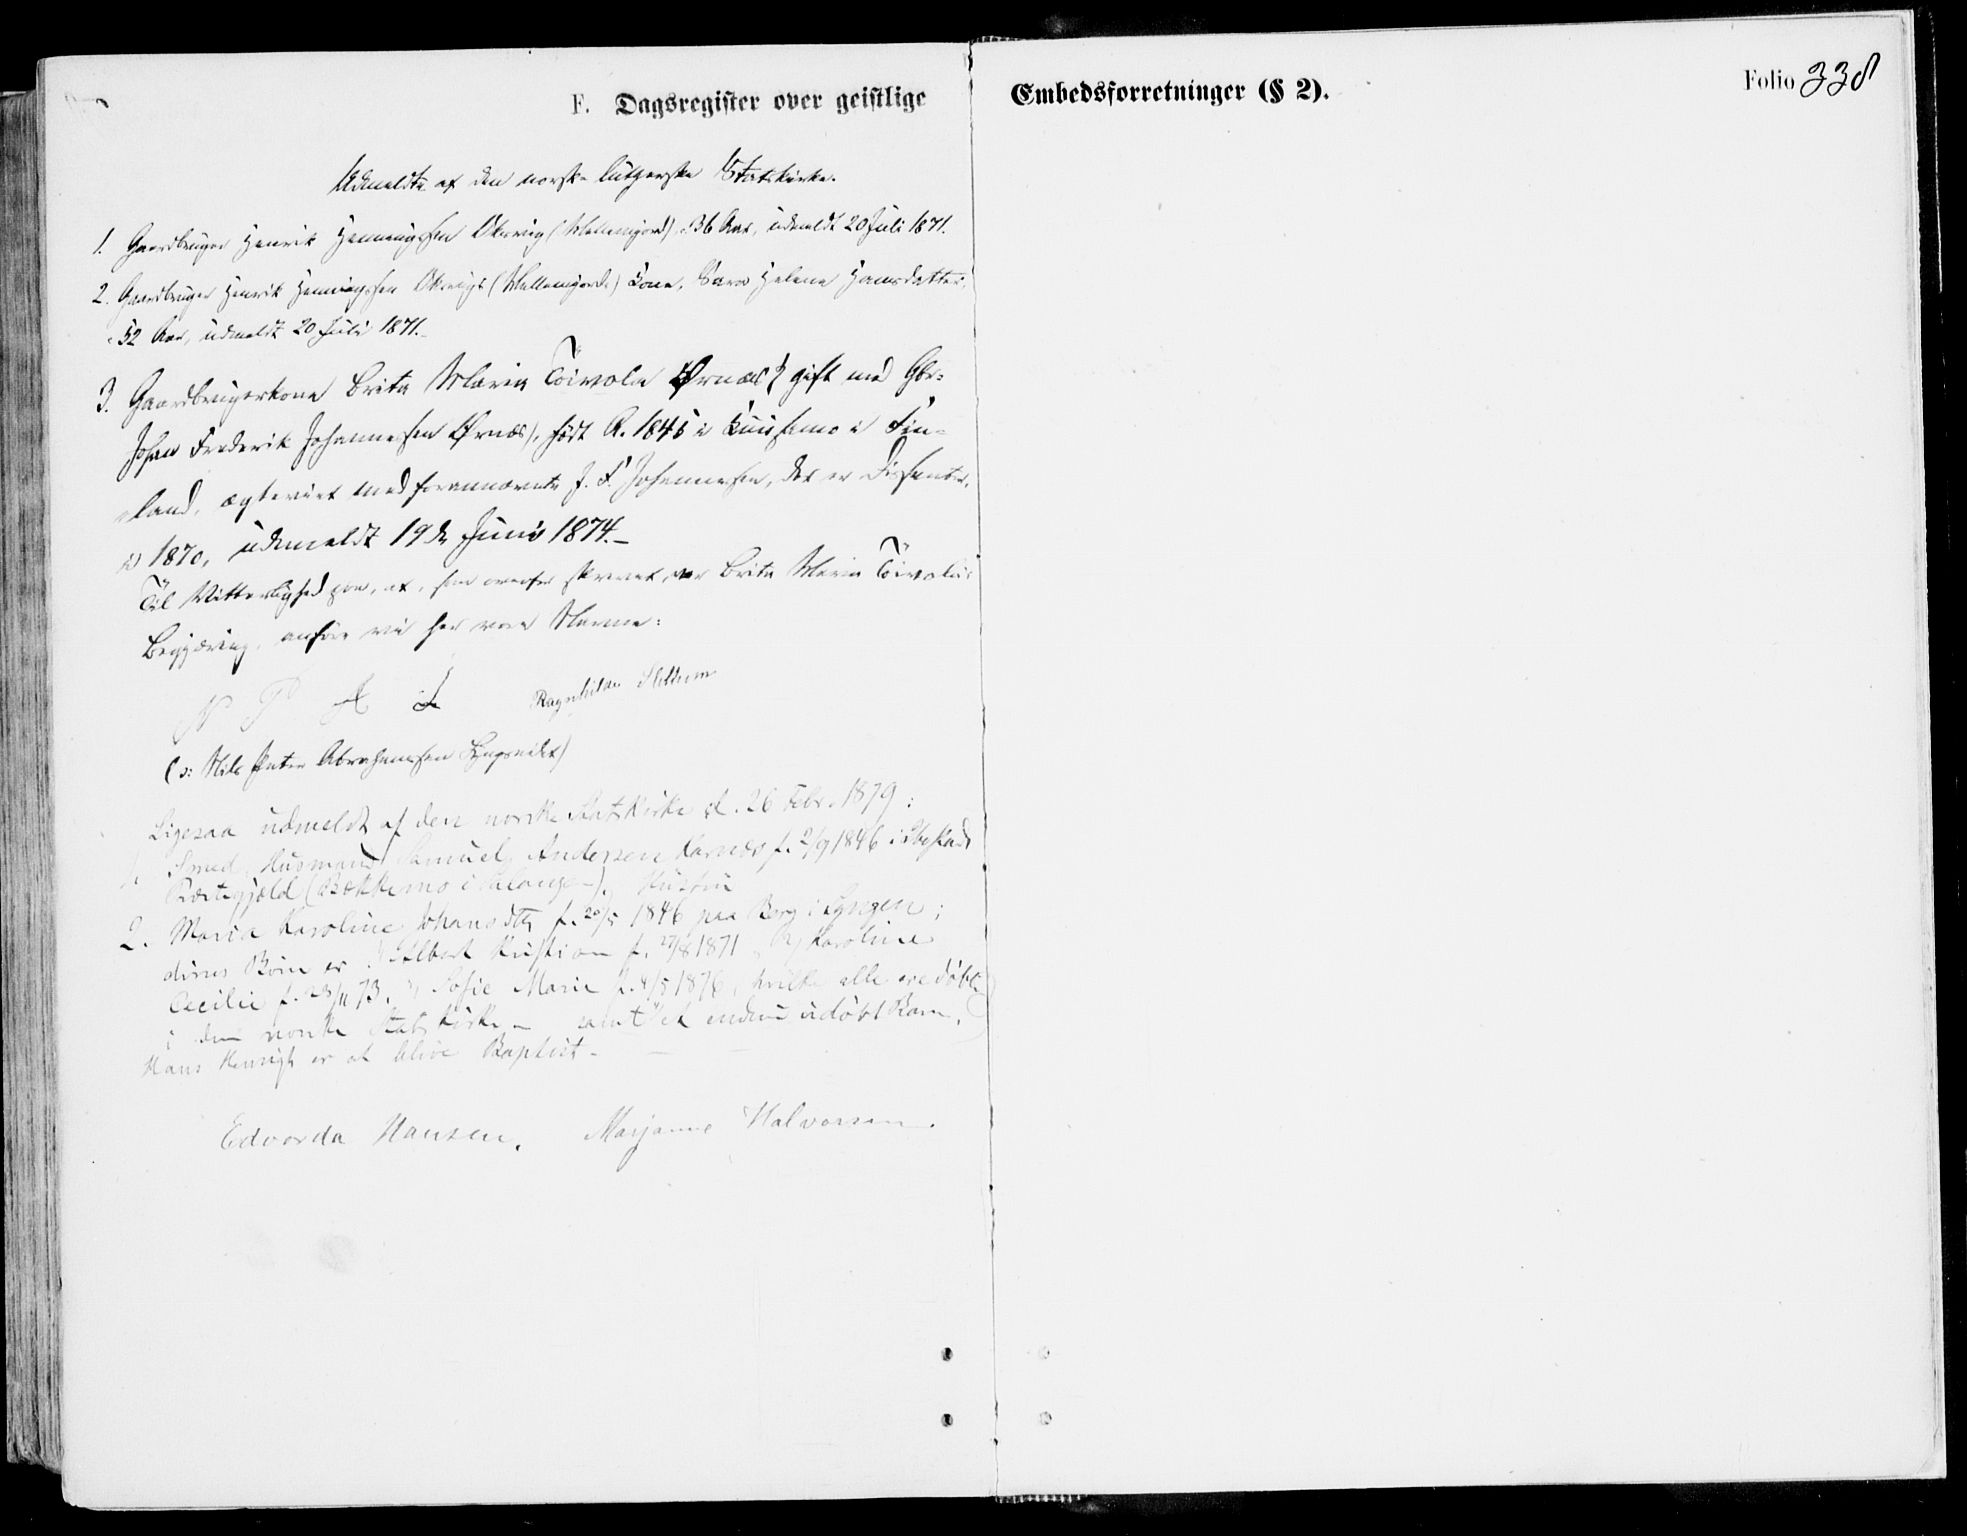 F. Dagsregister over geistlige
Embedsforretninger (§ 2).
Folio 338
Udmeldte af den norske lutherske Statskirke.
1. Gaardbruger Henrik Henningsen (Mellemjord), 36 Aar, udmeldt 20 Juli 1871.
2. Gaardbruger Henrik Henningsen (Mellemjord) Kone, Sara Helene Hansdatter,
52 Aar, udmeldt 20 Juli 1871.
3. Gaardbrugerkone Brita Maria Töivola Ørnæs (gift med Gbr.
Johan Frederik Johannesen Ørnæs), født A. 1845 i Kuusamo i Fin-
land, ægteviet med forannævnte J. F. Johannesen, der er Dissenter,
i 1870, udmeldt 19de Juni 1874.
Til Vitterlighed om, at, som ovenfor skrevet, er Brita Maria Töivolas
Begjæring, anføre vi her vore Navne:
N P A L Ragnhilda Slettum
(ɔ: Nils Peter Abrahamsen Lyngseidet)
Ligesaa udmeldt af den norske Statskirke d. 26 Febr. 1879:
1. Smed, Husmand Samuel Andersen Karnæs f. 2/9 1846 i Ibestads
Præstegjæld (Bækkemo i Salangen). Hustru
2. Maria Karoline Johansdtr f. 20/5 1846 paa Berg i Lyngen;
deres Børn er 1) Albert Kristian f. 27/8 1871, 2) Karoline
Cecilie f. 23/11 73. 3) Sofie Marie f. 4/5 1876, hvilke alle ere døbte
i den norske Statskirke – samt et endnu udøbt Barn.
Hans Hensigt er at blive Baptist –
Edvarda Hansen. Marjanne Halvorsen.